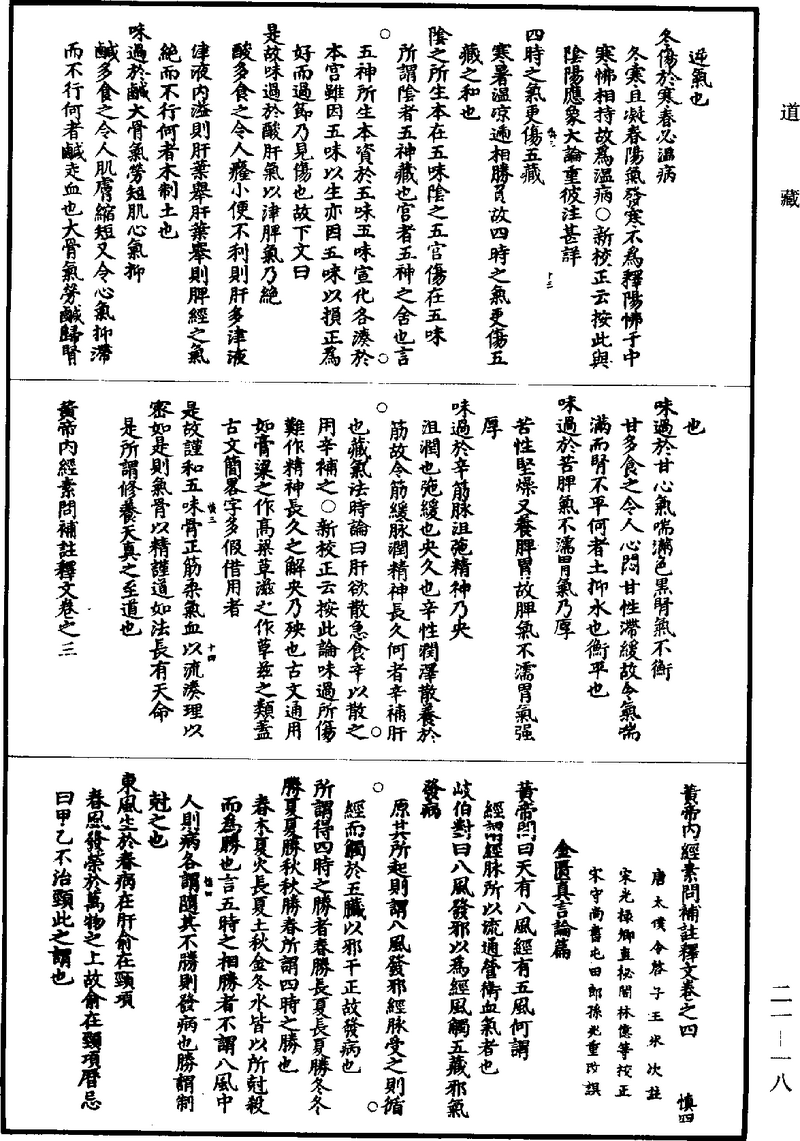 道藏
逆氣也
冬傷於寒春必溫病
冬寒且凝春陽氣發寒不為釋陽怫于中
寒怫相持故為溫病○新校正云按此與
陰陽應象大論重彼注甚詳
四時之氣更傷五藏
寒暑溫涼遞相勝負故四時之氣更傷五
藏之和也
陰之所生本在五味陰之五宮傷在五味
所謂陰者五神藏也宮者五神之舍也言
五神所生本資於五味五味宣化各湊於
本宮雖因五味以生亦因五味以損正為
好而過節乃見傷也故下文曰
是故味過於酸肝氣以津脾氣乃絕
酸多食之令人癃小便不利則肝多津液
津液內溢則肝葉舉肝葉舉則脾經之氣
絕而不行何者木制土也
味過於鹹大骨氣勞短肌心氣抑
鹹多食之令人肌膚縮短又令心氣抑滯
而不行何者鹹走血也大骨氣勞鹹歸腎
也
味過於甘心氣喘滿色黑腎氣不衡
甘多食之令人心悶甘性滯緩故令氣喘
滿而腎不平何者土抑水也衡平也
味過於苦脾氣不濡胃氣乃厚
苦性堅燥又養脾胃故脾氣不濡胃氣强
厚
味過於辛筋脉沮弛精神乃央
沮潤也弛緩也央久也辛性潤澤散養於
筋故令筋緩脉潤精神長久何者辛補肝
也藏氣法時論曰肝欲散急食辛以散之
用辛補之○新校正云按此論味過所傷
難作精神長久之解央乃殃也古文通用
如膏粱之作高粱草滋之作草兹之類蓋
古文簡畧字多假借用者
是故謹和五味骨正筋柔氣血以流湊理以
密如是則氣骨以精謹道如法長有天命
是所謂修養天真之至道也
黃帝內經素問補註釋文卷之三
黃帝內經素問補註釋文卷之四 慎四
唐太僕令啓玄子王氷次註
宋光祿卿直秘閣林億等校正
宋守尚書屯田郎孫兆重改誤
金匱真言論篇
黃帝問曰天有八風經有五風何謂
經謂經脉所以流通營衛血氣者也
岐伯對曰八風發邪以為經風觸五藏邪氣
發病
原其所起則謂八風發邪經脉受之則循
經而觸於五臟以邪干正故發病也
所謂得四時之勝者春勝長夏長夏勝冬冬
勝夏夏勝秋秋勝春所謂四時之勝也
春木夏火長夏土秋金冬水皆以所尅殺
而為勝也言五時之相勝者不謂八風中
人則病各謂隨其不勝則發病也勝謂制
尅之也
東風生於春病在肝俞在頸項
春風發榮於萬物之上故俞在頸項曆忌
曰甲乙不治頸此之謂也
二一—一八